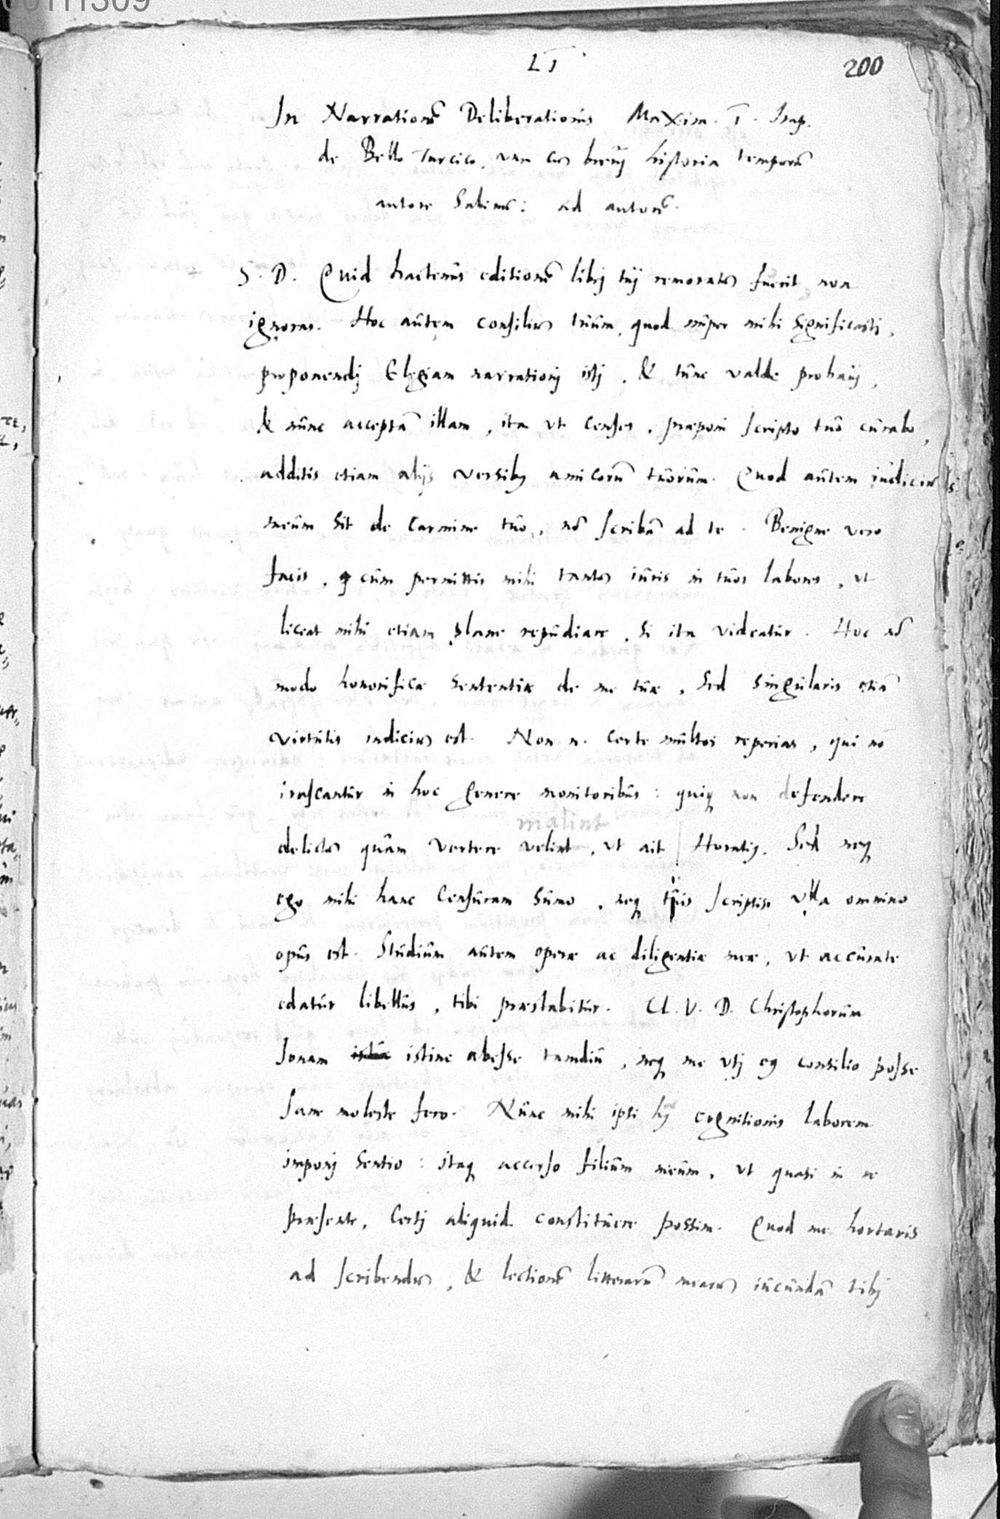 LI 200
In Narrationē Deliberationis Maxim. I. Imp.
de Bello Turcico, una cū brevi historia temporū
autore Sabino: ad autorē.
S. D. Quid hactenus editionē libri tui remoratū fuerit non
ignoras. Hoc autem consiliū tuum, quod nuper mihi significasti,
proponendi Elegiam narrationi isti, & tunc valde probavi,
& nunc acceptā illam, ita ut censes, praeponi scripto tuo curabo,
additis etiam aliis versibus amicorū tuorum. Quod autem iudiciū
meum sit de Carmine tuo, nō scribā ad te. Benigne vero
facis, cum permittis mihi tantū iuris in tuos labores, ut
liceat mihi etiam plane repudiare, si ita videatur. Hoc nō
modo honorificae sententiae de me tuae, sed singularis etiā
virtutis indiciū est. Non n. certe multos reperias, qui nō
irascantur in hoc genere monitoribus: quiq non defendere
malint
delictū quàm vertere velint, ut ait Horatius. Sed neq
ego mihi hanc Censuram sumo, neq tuis scriptis ulla omnino
opus est. Studium autem operae ac diligentiae meae, ut accurate
edatur libellus, tibi praestabitur. Cl. V. D. Christophorum
Jonam istinc abesse tamdiu, neq me uti eius consilio posse
sane moleste fero. Nunc mihi ipsi cognitionis laborem
imponi sentio: itaq accerso filium meum, ut quasi in re
praesente, certi aliquid constituere possim. Quod me hortaris
ad scribendū, & lectionē litterarū mearū iucundā tibi